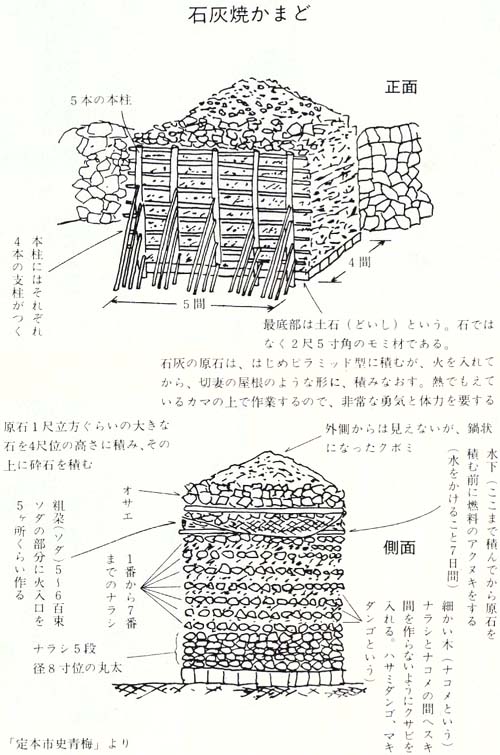 石灰焼かまど
正面
5本の本柱
本柱にはそれぞれ
4本の支柱がつく
4間
5間
最底部は土石（どいし）という。石では
なく2尺5寸角のモミ材である。
石灰の原石は、はじめピラミッド型に積むが、火を入れて
から、切妻の屋根のような形に、積みなおす。熱でもえて
いるカマの上で作業するので、非常な勇気と体力を要する
原石1尺立方ぐらいの大きな
石を4尺位の高さに積み、その
上に砕石を積む
外側からは見えないが、鍋状
になったクボミ
水下（ここまで積んでから原石を
積む前に燃料のアクヌキをする
（水をかけること7日間）
オサエ
粗朶（ソダ）5〜6百束
ソダの部分に火入口を
5ヶ所くらい作る
1番から7番
までのナラシ
側面
細かい木（ナコメという）
ナラシとナコメの間へスキ
間を作らないようにクサビを
入れる。ハサミダンゴ、マキ
ダンゴという）
ナラシ5段
径8寸位の丸太
「定本市史青梅」より